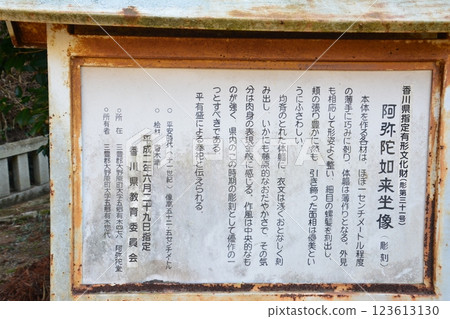 香川県指定有形文化財(彫第三十一号)
阿弥陀如来坐像(彫刻)
本体を作る各材は、ほぼ一センチメートル程度
の薄手に巧みに刳り、体軀は薄作りとなる。外見
も相応して形姿よく整い、細目の螺髪を刻出し、
頰の張り豊かに然も、引き締った面相は優美とい
うにふさわしい。
均斉のとれた体軀に、衣文は浅くおとなしく刻
み出し、いかにも藤原的なおだやかさで、その気
分は肉身の表現全般に感じる。作風は中央的なも
のが強く、県内のこの時期の彫刻として優作の一
つとすべきである。
平有盛による奉祀と伝えられる。
平安時代(十二世紀) 像高五十二・五センチメートル
桧材 寄木造
平成二年六月二十九日指定
香川県教育委員会
所在 三豊郡大野原町大字五郷有木 阿弥陀堂
所有者 三豊郡大野原町大字五郷有木
123613130